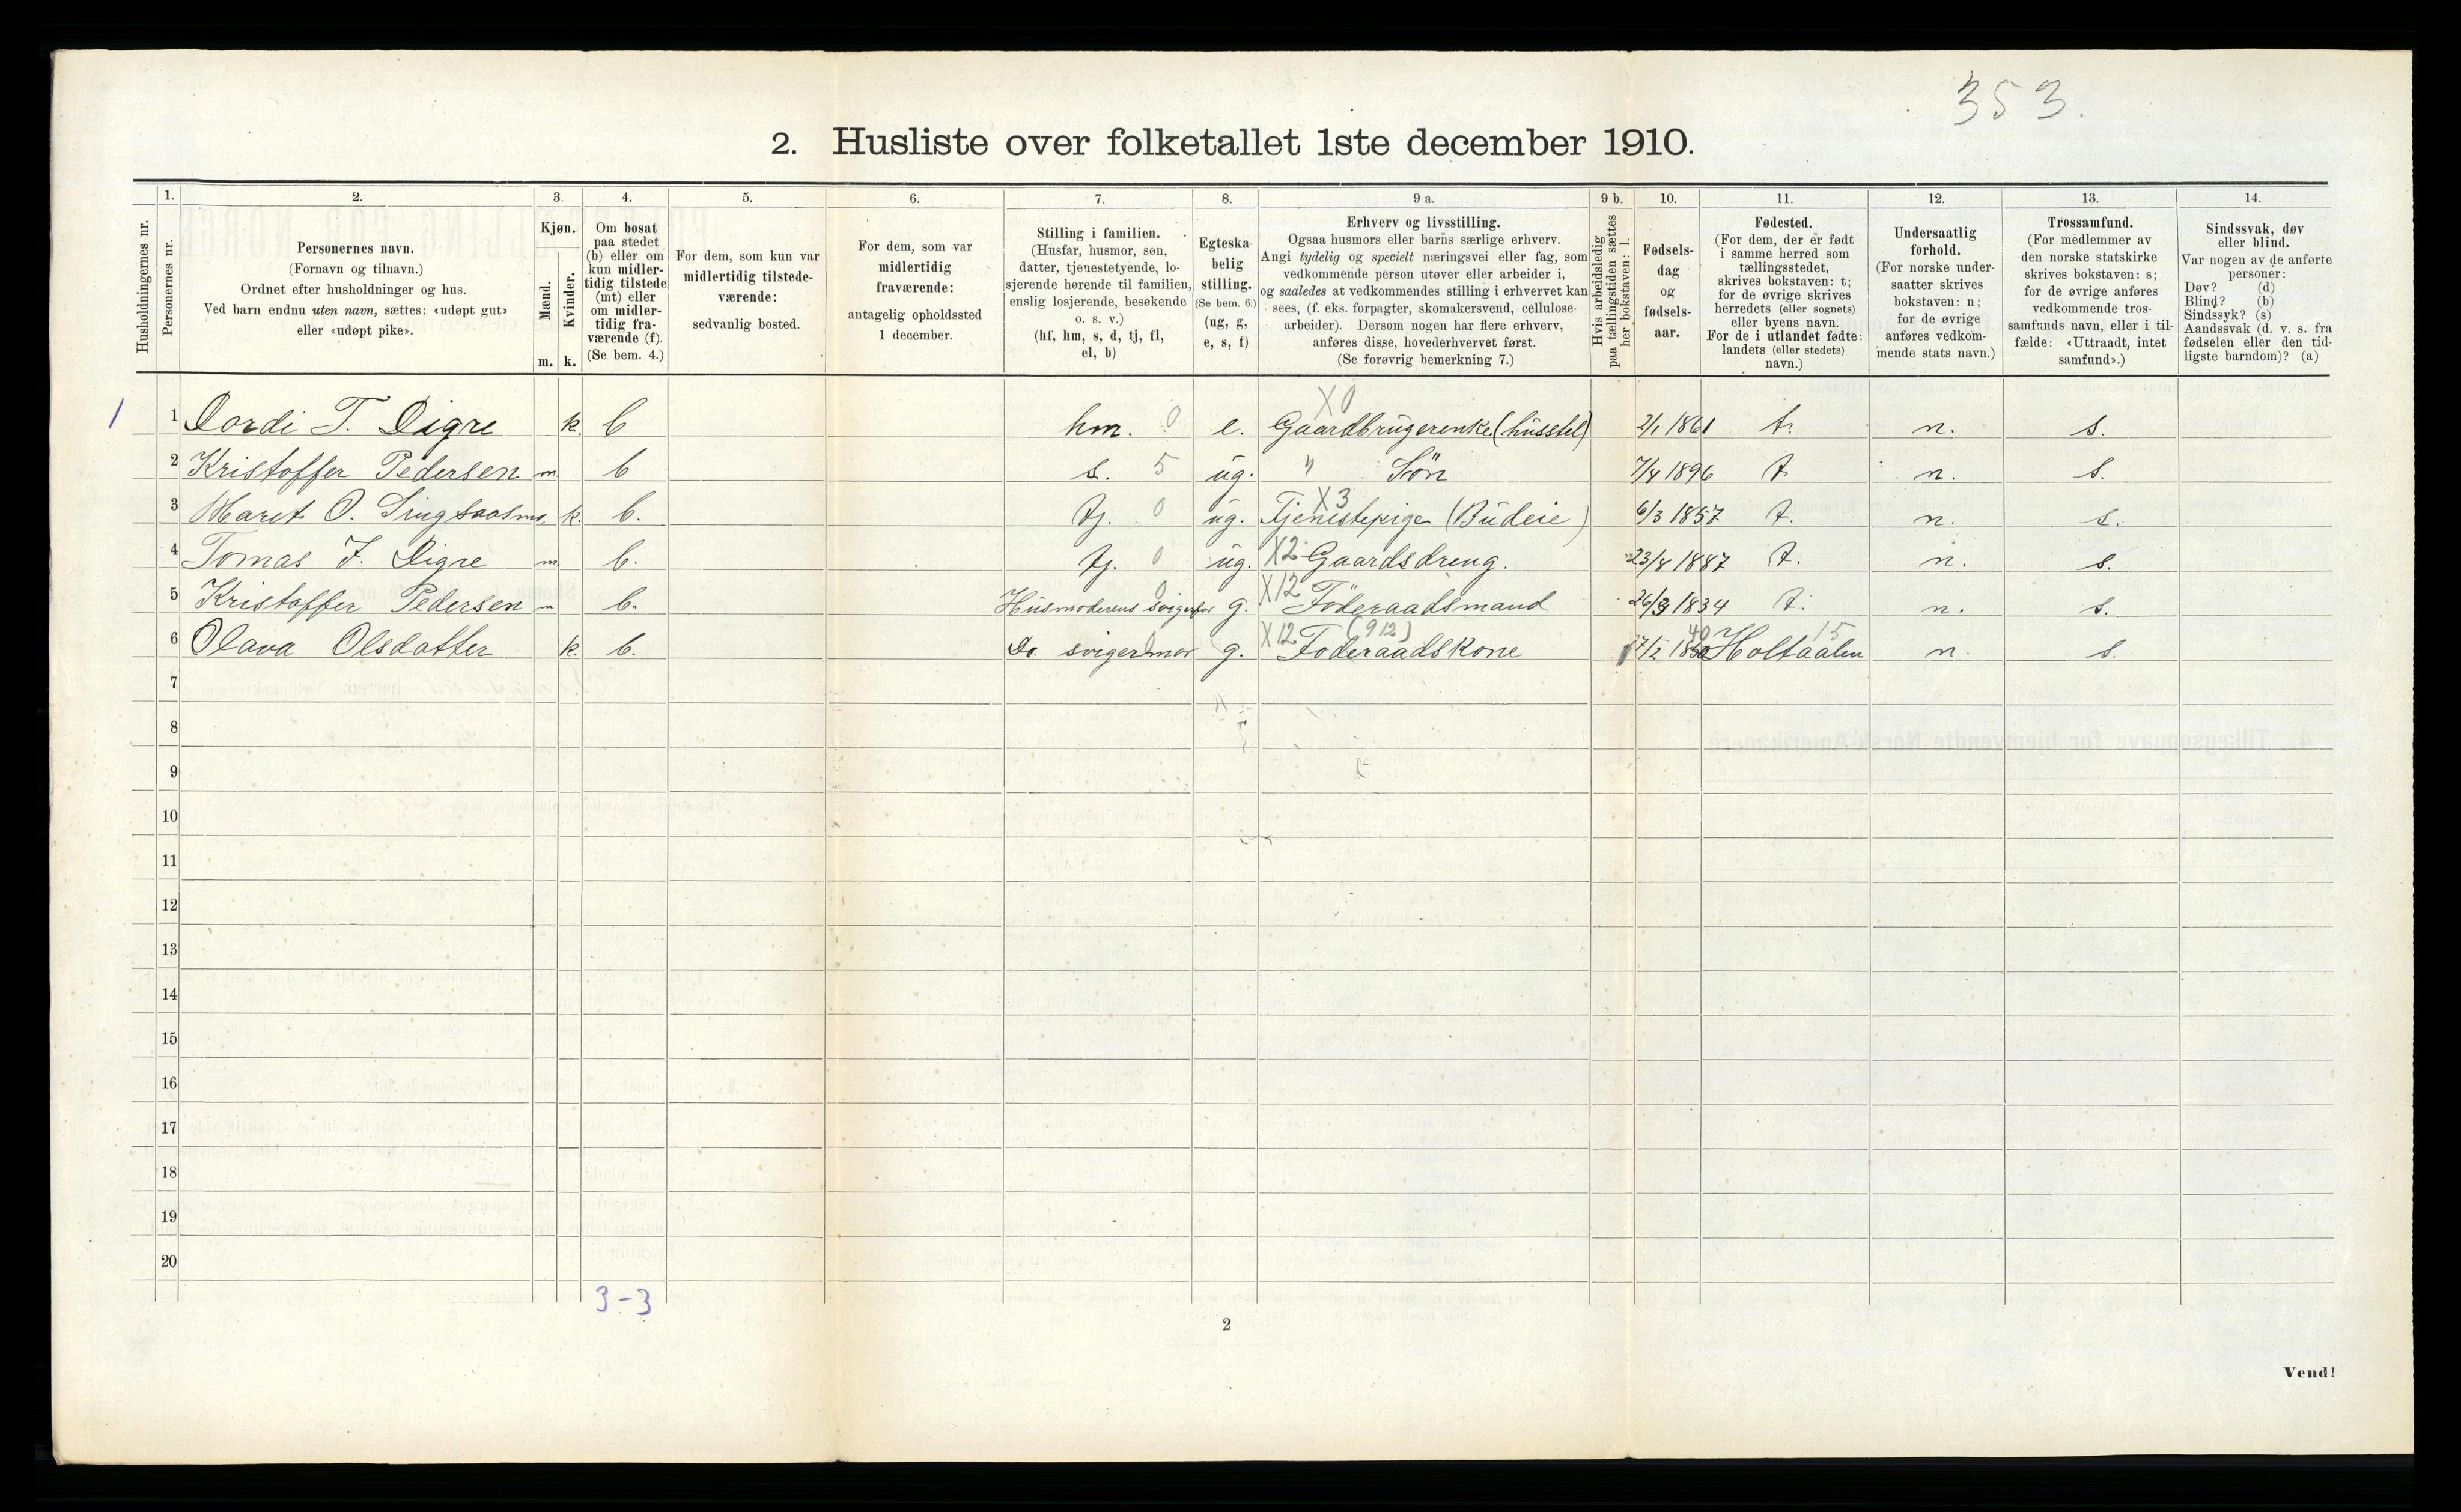 353.
2. Husliste over folketallet 1ste december 1910.
Husholdningernes nr.
1.
Personernes nr.
2.
Personernes navn.
(Fornavn og tilnavn.)
Ordnet efter husholdninger og hus.
Ved barn endnu uten navn, sættes: «udøpt gut»
eller «udøpt pike».
3.
Kjøn.
Mænd.
Kvinder.
m. k.
4.
Om bosat
paa stedet
(b) eller om
kun midler-
tidig tilstede
(mt) eller
om midler-
tidig fra-
værende (f).
(Se bem. 4.)
5.
For dem, som kun var
midlertidig tilstede-
værende:
sedvanlig bosted.
6.
For dem, som var
midlertidig
fraværende:
antagelig opholdssted
1 december.
7.
Stilling i familien.
(Husfar, husmor, søn,
datter, tjenestetyende, lo-
sjerende hørende til familien,
enslig losjerende, besøkende
o. s. v.)
(hf, hm, s, d, tj, fl,
el, b)
8.
Egteska-
belig
stilling.
(Se bem. 6.)
(ug, g,
e, s, f)
9 a.
Erhverv og livsstilling.
Ogsaa husmors eller barns særlige erhverv.
Angi tydelig og specielt næringsvei eller fag, som
vedkommende person utøver eller arbeider i,
og saaledes at vedkommendes stilling i erhvervet kan
sees, (f. eks. forpagter, skomakersvend, cellulose-
arbeider). Dersom nogen har flere erhverv,
anføres disse, hovederhvervet først.
(Se forøvrig bemerkning 7.)
9 b.
Hvis arbeidsledig
paa tællingstiden sættes
her bokstaven: l.
10.
Fødsels-
dag
og
fødsels-
aar.
11.
Fødested.
(For dem, der er født
i samme herred som
tællingsstedet,
skrives bokstaven: t;
for de øvrige skrives
herredets (eller sognets)
eller byens navn.
For de i utlandet fødte:
landets (eller stedets)
navn.)
12.
Undersaatlig
forhold.
(For norske under-
saatter skrives
bokstaven: n;
for de øvrige
anføres vedkom-
mende stats navn.)
13.
Trossamfund.
(For medlemmer av
den norske statskirke
skrives bokstaven: s;
for de øvrige anføres
vedkommende tros-
samfunds navn, eller i til-
fælde: «Uttraadt, intet
samfund».)
14.
Sindssvak, døv
eller blind.
Var nogen av de anførte
personer:
Døv? (d)
Blind? (b)
Sindssyk? (s)
Aandssvak (d. v. s. fra
fødselen eller den tid-
ligste barndom)? (a)
X0
1 1 Dordi T. Digre k. b hm. 0 e. Gaardbrugerenke (husstel) 2/1 1861 t. n. s.
2 Kristoffer Pedersen m. b s. 5 ug. " Søn 7/4 1896 t. n. s.
X3
3 Maret O. Singsaasmo. k. b. tj. 0 ug. Tjenestepige (Budeie) 6/3 1857 t. n. s.
4 Tomas J. Digre m. b. tj. 0 ug. X2 Gaardsdreng. 23/4 1887 t. n. s.
5 Kristoffer Pedersen m b. Husmoderens svigerfar 0 g. X12 Føderaadsmand 26/3 1834 t. n. s.
(912) 40 15
6 Olava Olsdatter k. b. Do. svigermor 0 g. X12 Føderaadskone 17/2 18 Holtaalen n. s.
7
8
9
10
11
12
13
14
15
16
17
18
19
20
3-3
2
Vend!